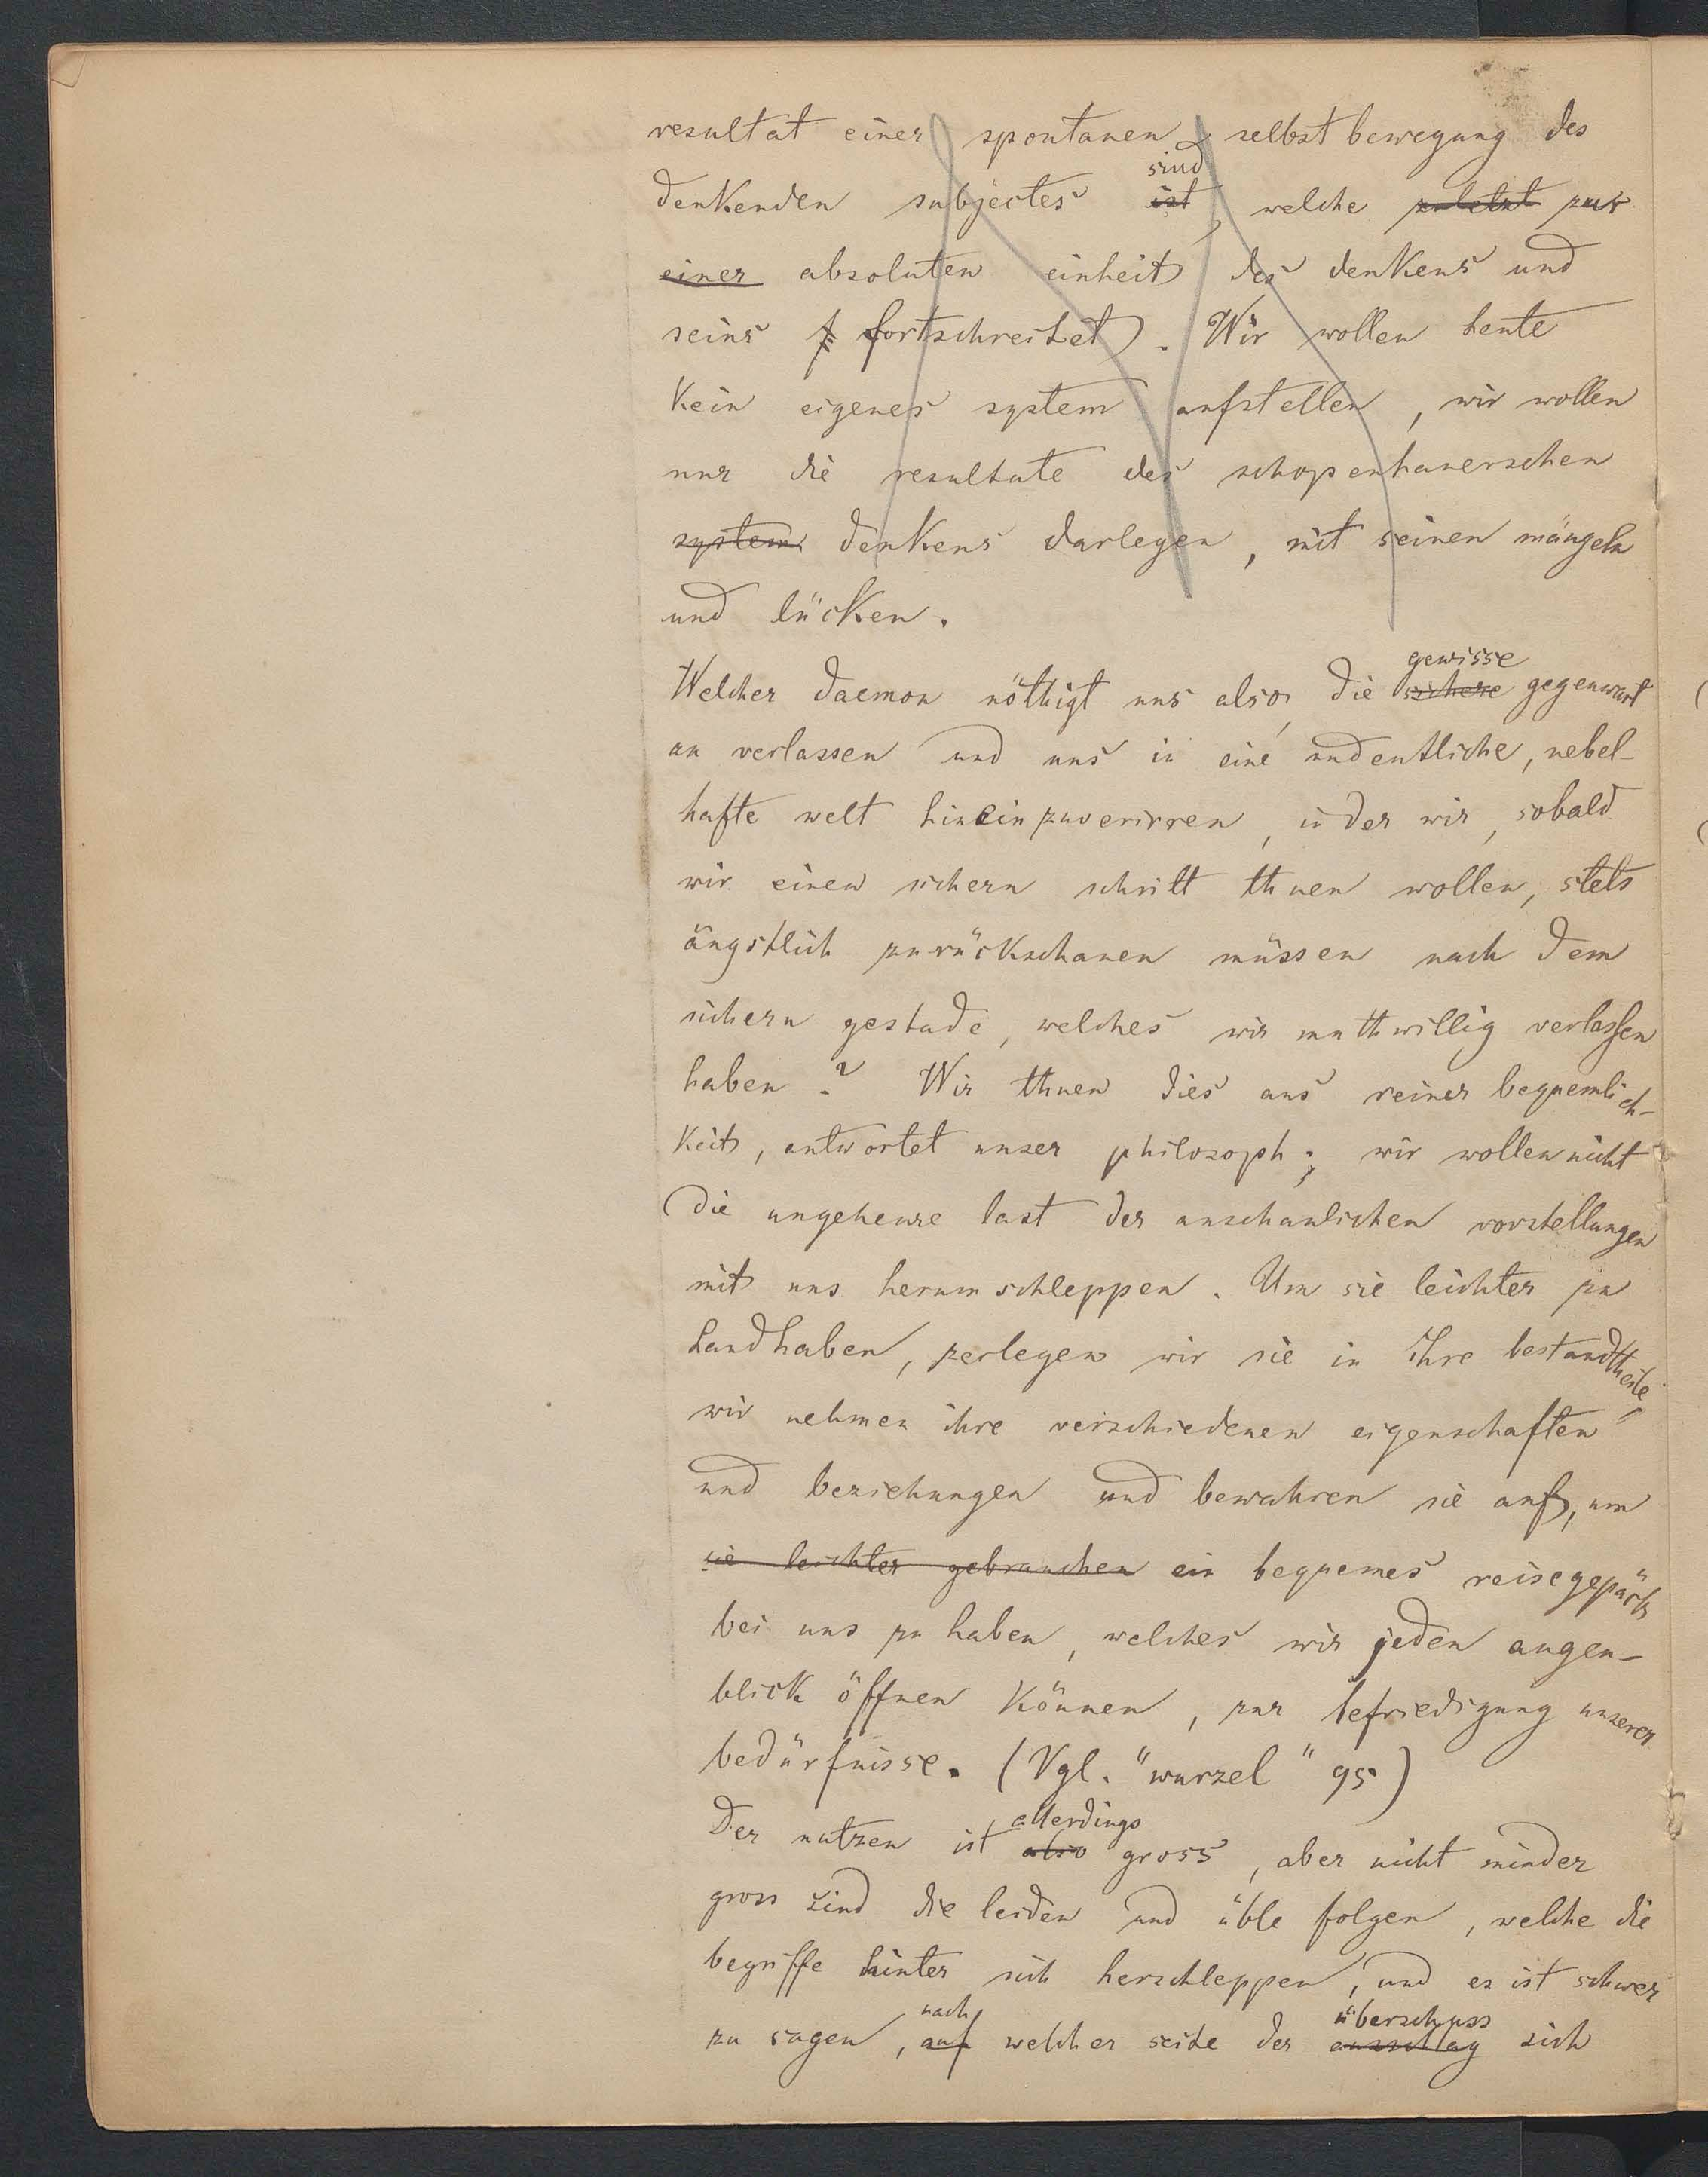 resultat einer spontanen selbstbewegung des
denkenden subjectes ist sind, welche zuletzt zur
einer absoluten einheit des denkens und
seins f fortschreitet). Wir wollen heute
kein eigenes system aufstellen, wir wollen
nur die resultate des schopenhauerschen
system denkens darlegen, mit seinen mängeln
und lücken.
Welcher daemon nöthigt uns also, die sichere gewisse gegenwart
zu verlassen und uns in eine undeutliche, nebel-
hafte welt hineinzuverirren, in der wir, sobald
wir einen sichern schritt thuen wollen, stets
ängstlich zurückschauen müssen nach dem
sichern gestade, welches wir muthwillig verlassen
haben? Wir thuen dies aus reiner bequemlich-
keit, antwortet unser philosoph; wir wollen nicht
die ungeheure last der anschaulichen vorstellungen
mit uns herumschleppen. Um sie leichter zu
handhaben, zerlegen wir sie in ihre bestandtheile,
wir nehmen ihre verschiedenen eigenschaften
und beziehungen und bewahren sie auf, um
sie leichter gebrauchen ein bequemes reisegepäck
bei uns zu haben, welches wir jeden augen-
blick öffnen können, zur befriedigung unserer
bedürfnisse. (Vgl. "wurzel" 95)
Der nutzen ist also allerdings gross, aber nicht minder
gross sind die leiden und üble folgen, welche die
begriffe hinter sich herschleppen, und es ist schwer
zu sagen, auf nach welcher seite der ausschlag überschuss sich